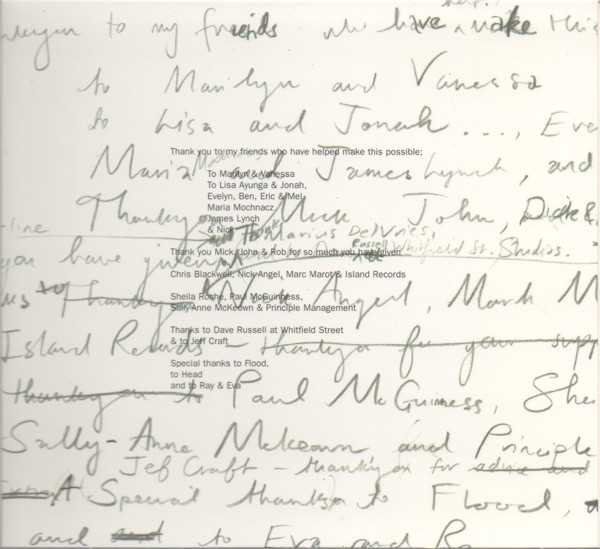 help!
to my friends who have make this
to Marilyn and Vanessa
to Lisa and Jonah...., Eve
Thank you to my friends who have helped make this possible;
Maria Mochnacz James Lynch, and
To Marilyn & Vanessa
To Lisa Ayunga & Jonah,
Evelyn, Ben, Eric & Mel
Maria Mochnacz
James Lynch
& Nick
Thankyou Mick, John, Dick &
-line
and to Marius DeVries,
Thank you Mick, John & Rob for so much you have given
you have given Russell Whitfield St. Studios.
Chris Blackwell, Nick Angel, Marc Marot & Island Records
us to Thankyou Nick Angel, March M
Sheila Roche, Paul McGuinness,
Sally-Anne McKeown & Principle Management
Thanks to Dave Russell at Whitfield Street
& to Jeff Craft
Island Records - thankyou for your supp
Special thanks to Flood,
to Head
and to Ray & Eva
thankyou to Paul McGuiness, She
Sally-Anne Mckeown and Principle
Jef Craft - thankyou for advice and
Special thanks to Flood,
and and to Eva and R